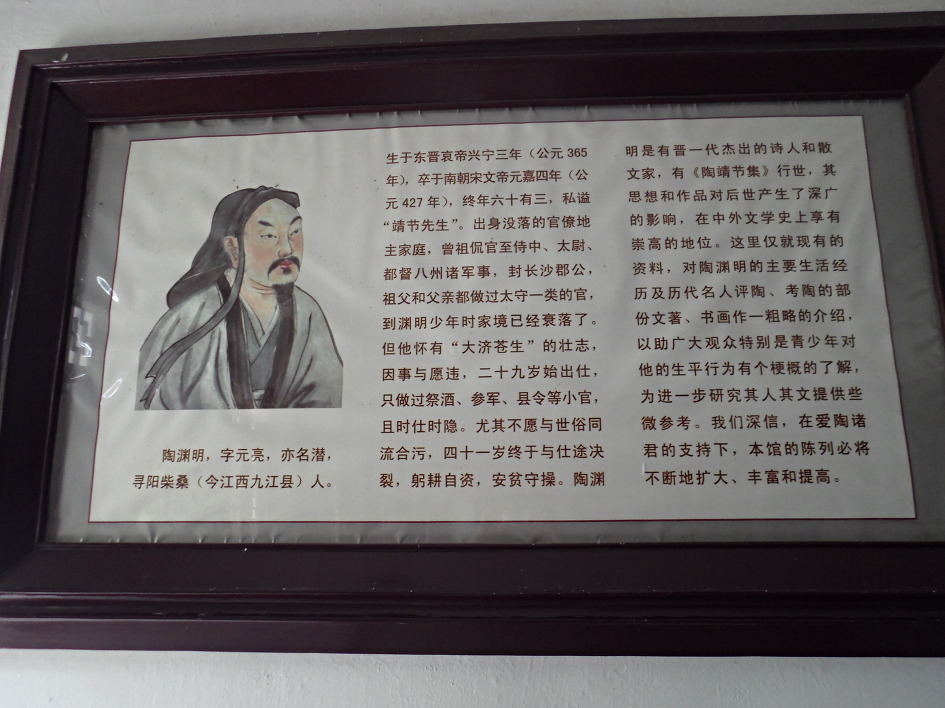 陶渊明，字元亮，亦名潜，
寻阳柴桑（今江西九江县）人。
生于东晋哀帝兴宁三年（公元 365
年），卒于南朝宋文帝元嘉四年（公
元 427 年），终年六十有三，私谥
“靖节先生”。出身没落的官僚地
主家庭，曾祖侃官至侍中、太尉、
都督八州诸军事，封长沙郡公，
祖父和父亲都做过太守一类的官，
到渊明少年时家境已经衰落了。
但他怀有“大济苍生”的壮志，
因事与愿违，二十九岁始出仕，
只做过祭酒、参军、县令等小官，
且时仕时隐。尤其不愿与世俗同
流合污，四十一岁终于与仕途决
裂，躬耕自资，安贫守操。陶渊
明是有晋一代杰出的诗人和散
文家，有《陶靖节集》行世，其
思想和作品对后世产生了深广
的影响，在中外文学史上享有
崇高的地位。这里仅就现有的
资料，对陶渊明的主要生活经
历及历代名人评陶、考陶的部
份文著、书画作一粗略的介绍，
以助广大观众特别是青少年对
他的生平行为有个梗概的了解，
为进一步研究其人其文提供些
微参考。我们深信，在爱陶诸
君的支持下，本馆的陈列必将
不断地扩大、丰富和提高。